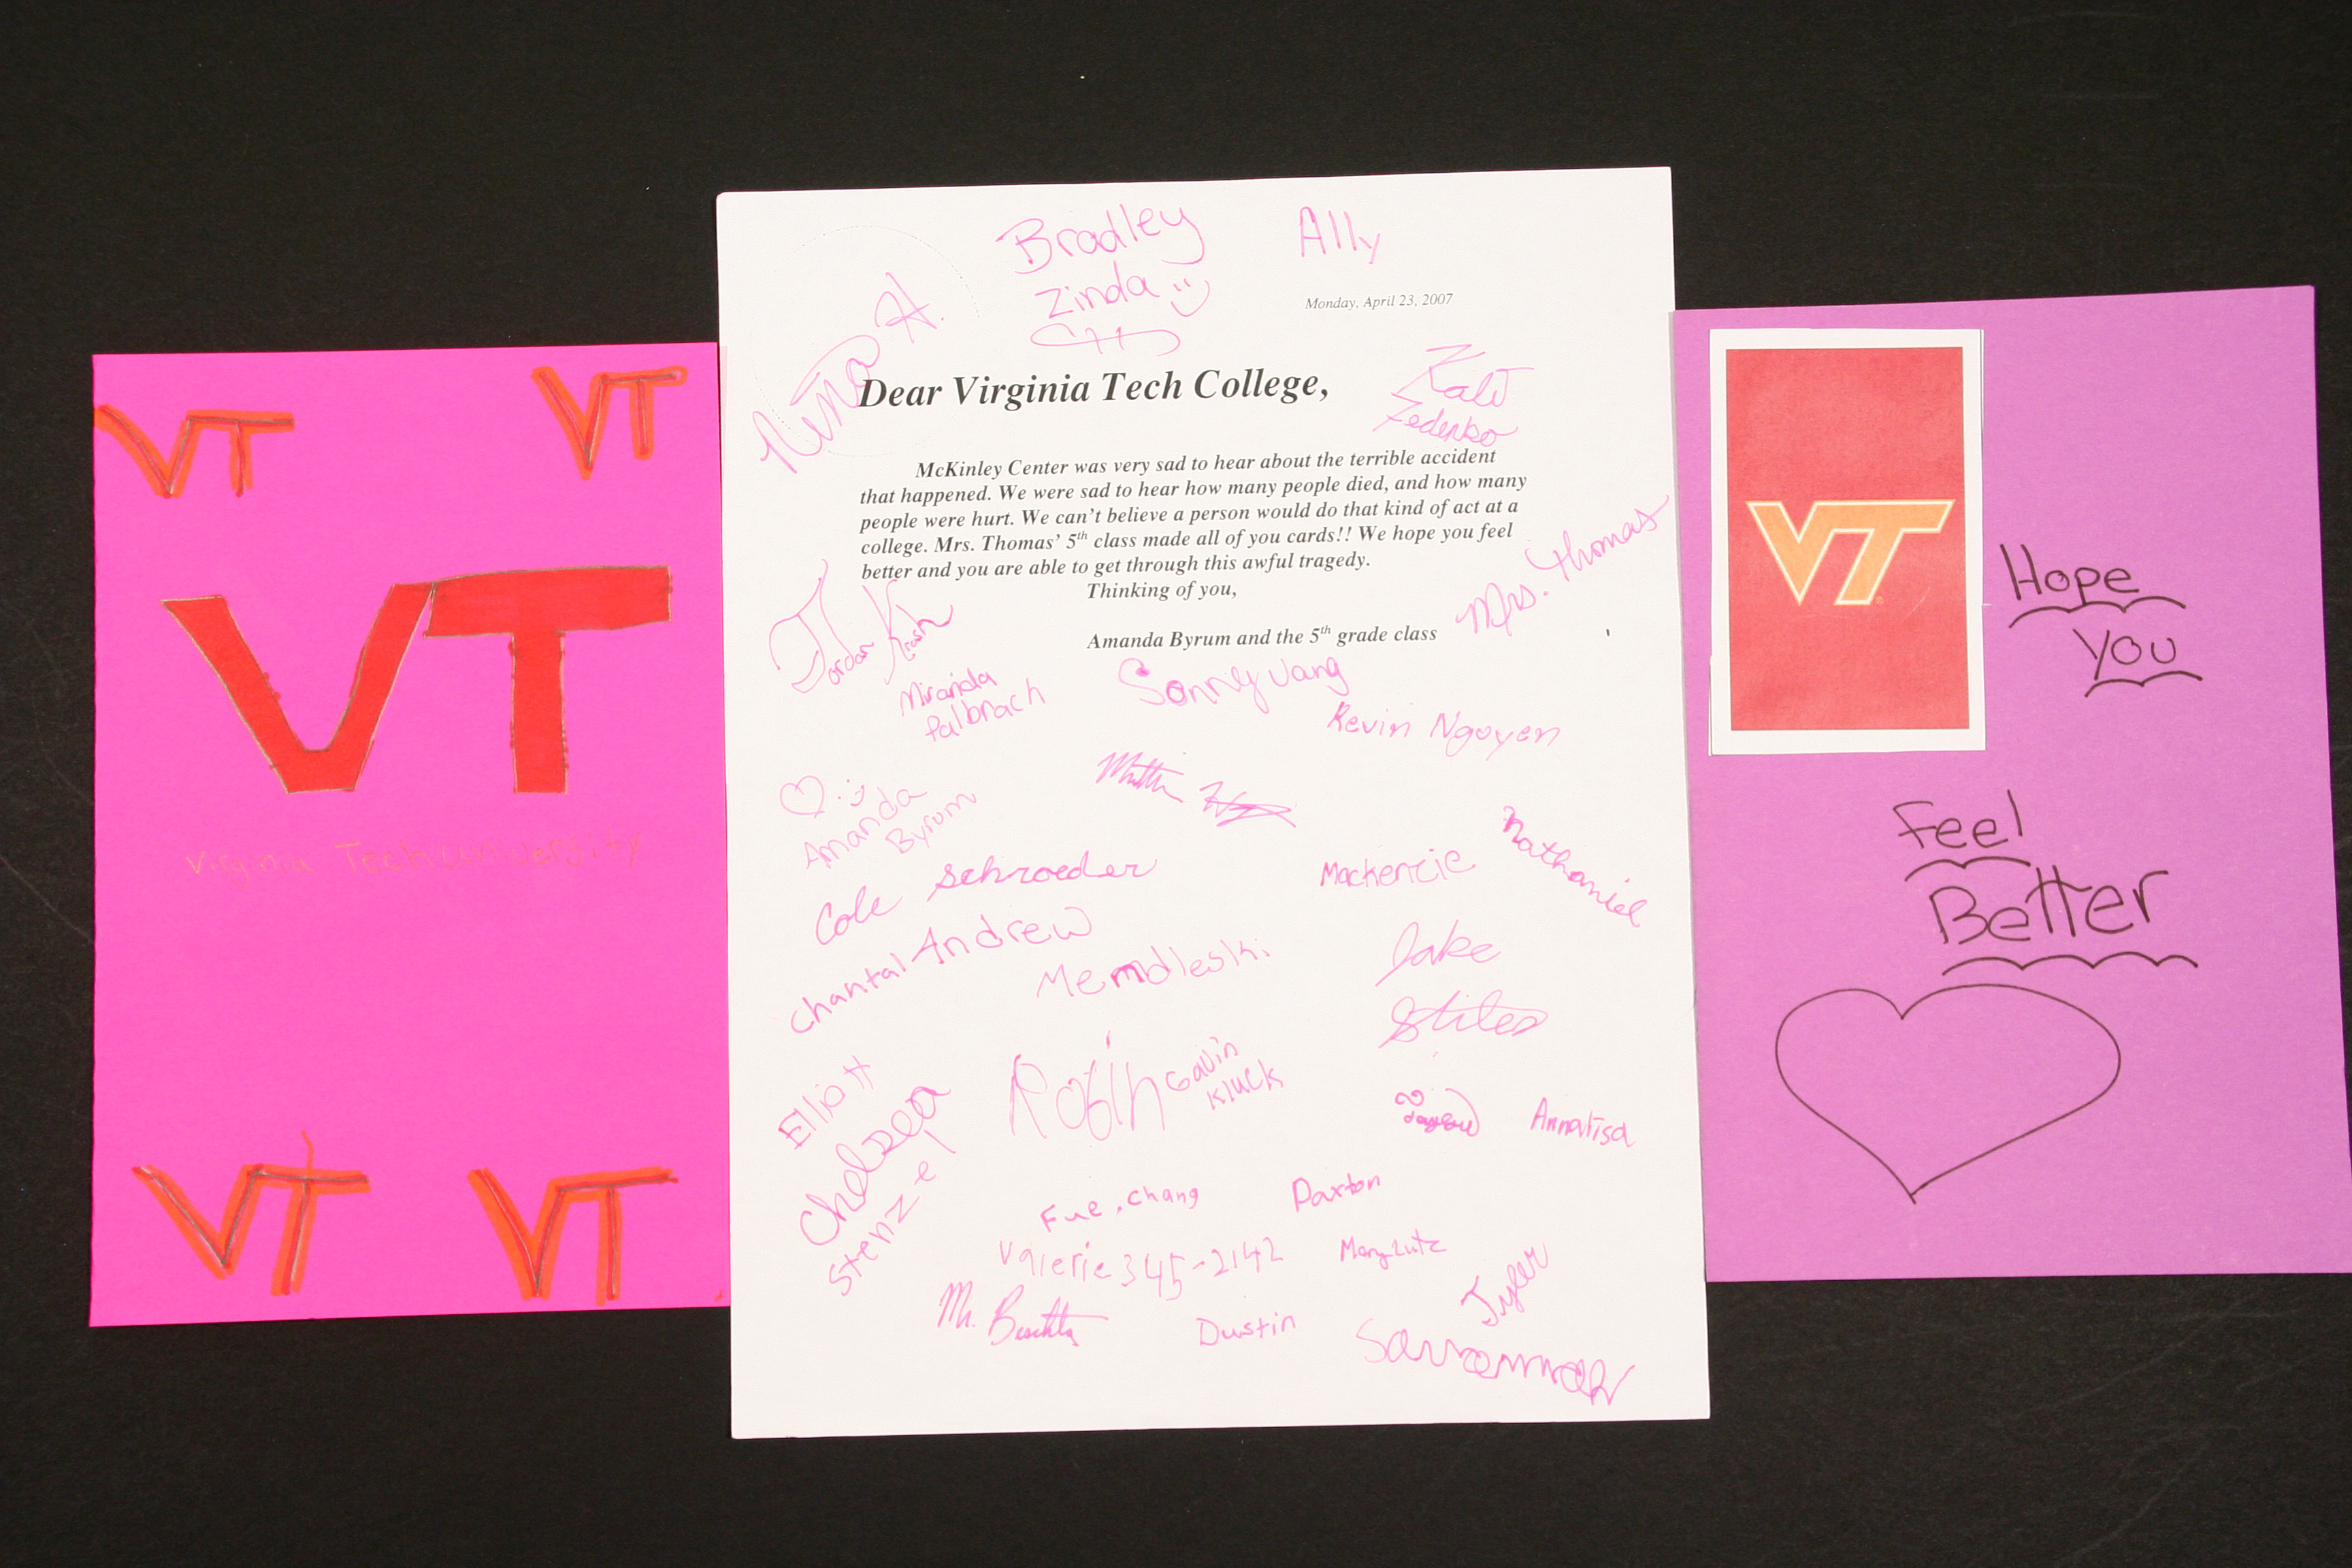 VT
VT
VT
Virginia Tech University
VT
VT
Bradley
Zinda
Ally
Monday, April 23, 2007
H.
Dear Virginia Tech College,
McKinley Center was very sad to hear about the terrible accident
that happened. We were sad to hear how many people died, and how many
people were hurt. We can't believe a person would do that kind of act at a
college. Mrs. Thomas' 5th class made all of you cards!! We hope you feel
better and you are able to get through this awful tragedy.
Thinking of you,
Amanda Byrum and the 5th grade class
Mrs. Thomas
Jordan
Miranda
Sonny Vang
Kevin Ngoyen
Amanda
Byrum
Nathaniel
Cole Schroeder
Mackenzie
Chantal Andrew
Jake
Stiles
Elliott
Robin
Gavin
Kluck
Chelsea
Stenzel
Annalisa
Fue, Chang
Paxton
Valerie 345-2142
Mary Lutz
Tyler
Mr.
Dustin
Savannah
VT
Hope
You
Feel
Better